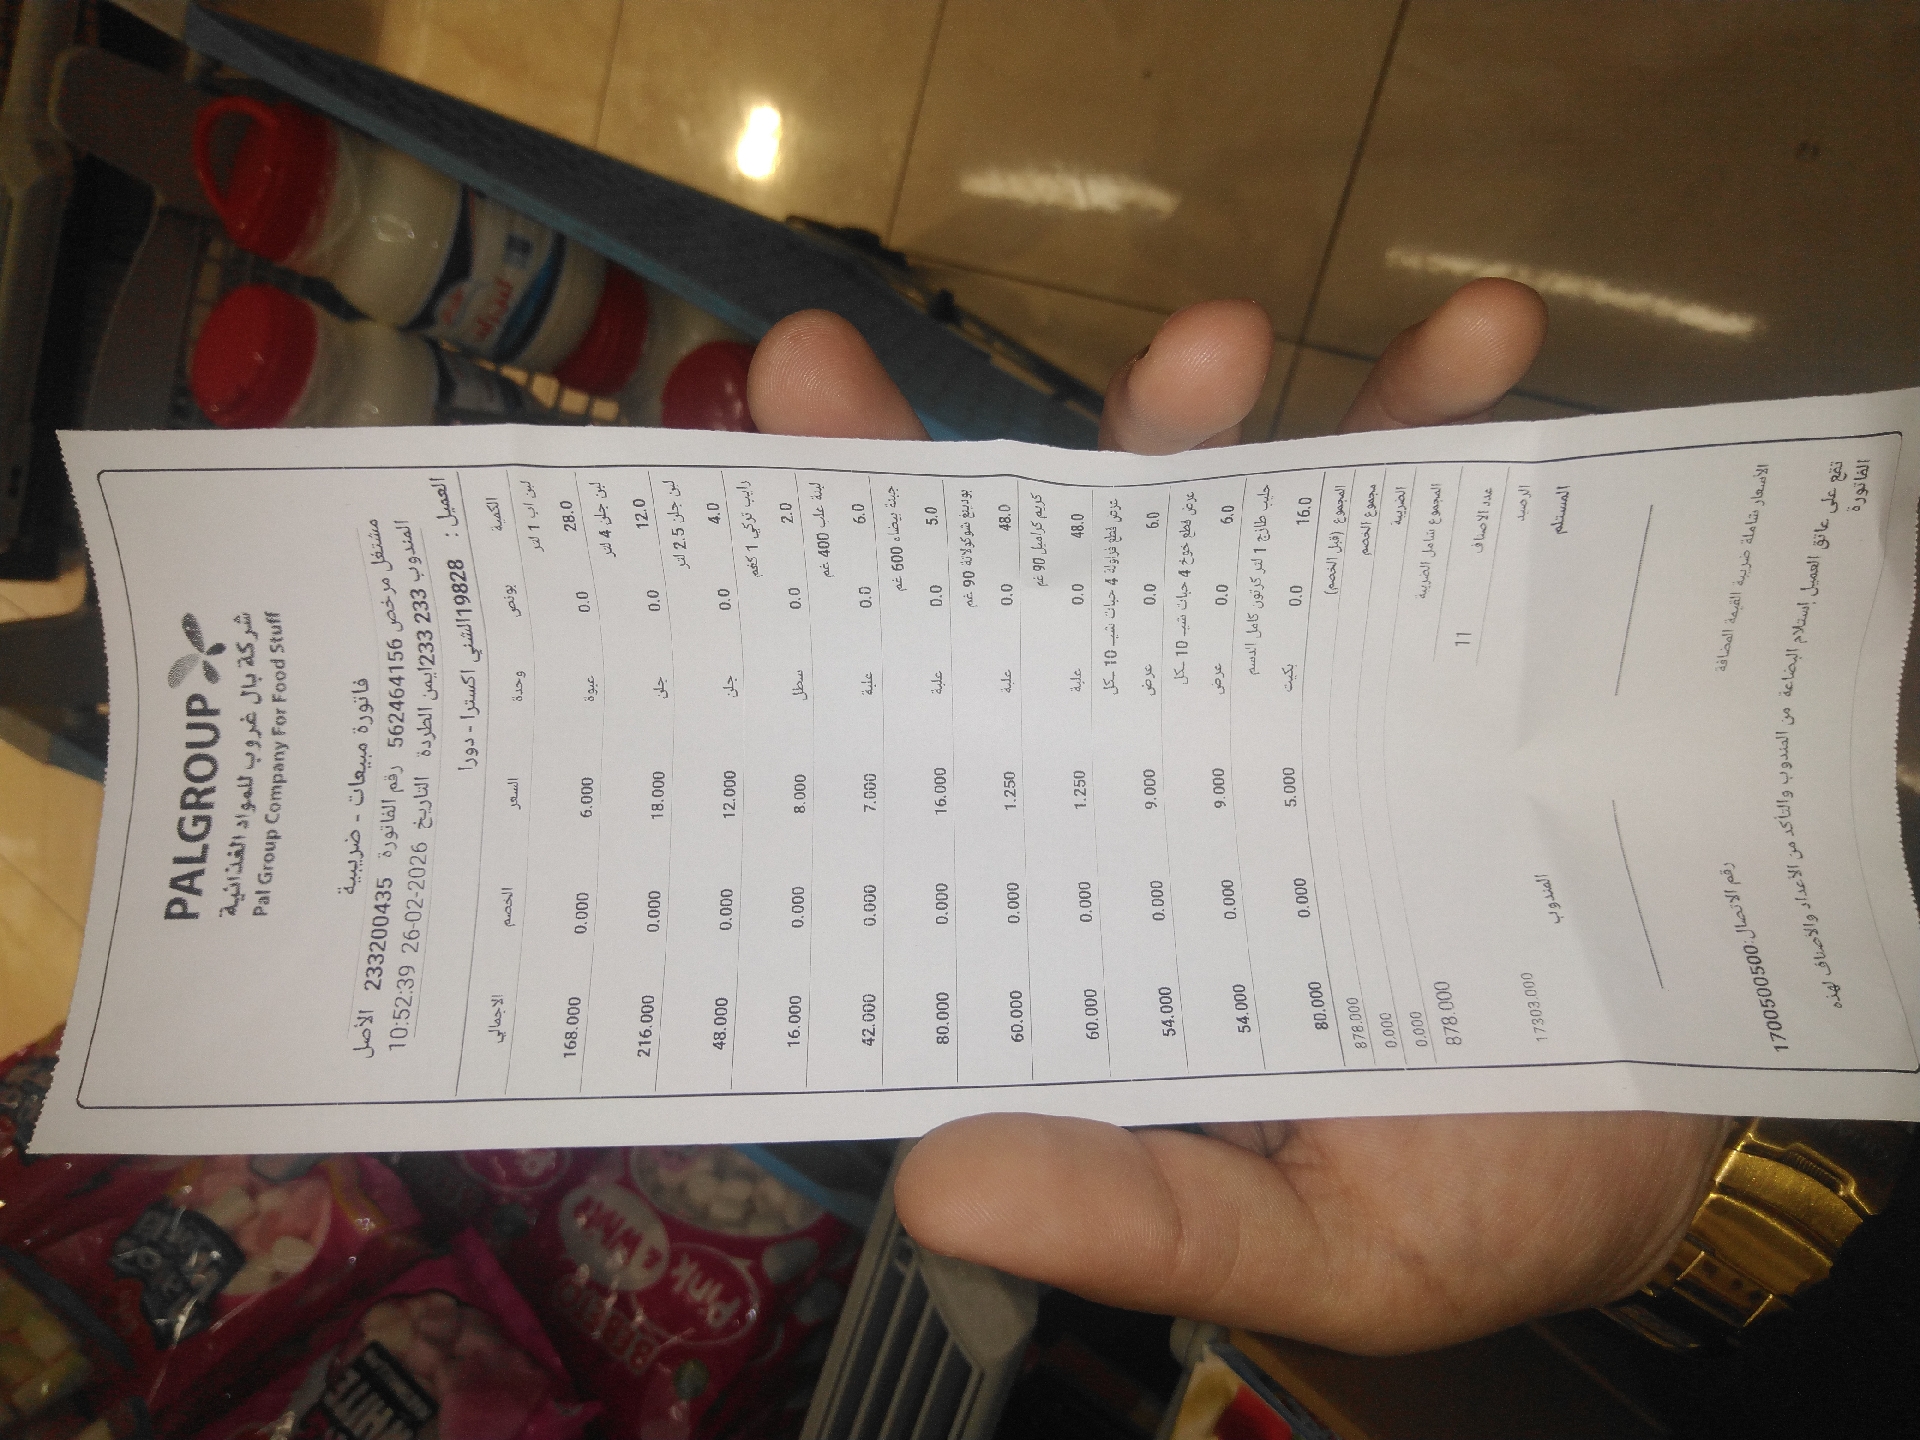 PALGROUP
شركة بال غروب للمواد الغذائية
Pal Group Company For Food Stuff
فاتورة مبيعات - ضريبية
مشتغل مرخص 562464156 رقم الفاتورة 233200435 الأصل
المندوب 233 233ايمن الطردة التاريخ 26-02-2026 10:52:39
العميل : 19828الشني اكسترا - دورا
الكمية بونص وحدة السعر الخصم الاجمالي
لبن اب 1 لتر
28.0 0.0 عبوة 6.000 0.000 168.000
لبن جلن 4 لتر
12.0 0.0 جلن 18.000 0.000 216.000
لبن جلن 2.5 لتر
4.0 0.0 جلن 12.000 0.000 48.000
رايب تركي 1 كغم
2.0 0.0 سطل 8.000 0.000 16.000
لبنة علب 400 غم
6.0 0.0 علبة 7.000 0.000 42.000
جبنة بيضاء 600 غم
5.0 0.0 علبة 16.000 0.000 80.000
بودينغ شوكولاتة 90 غم
48.0 0.0 علبة 1.250 0.000 60.000
كريم كراميل 90 غم
48.0 0.0 علبة 1.250 0.000 60.000
عرض قطع فراولة 4 حبات شب 10 كل
6.0 0.0 عرض 9.000 0.000 54.000
عرض قطع خوخ 4 حبات شب 10 كل
6.0 0.0 عرض 9.000 0.000 54.000
حليب طازج 1 لتر كرتون كامل الدسم
16.0 0.0 بكيت 5.000 0.000 80.000
المجموع (قبل الخصم) 878.000
مجموع الخصم 0.000
الضريبة 0.000
المجموع شامل الضريبة 878.000
عدد الاصناف 11
الرصيد 17303.000
المستلم المندوب
الاسعار شاملة ضريبة القيمة المضافة
رقم الاتصال:1700500500
تقع على عاتق العميل إستلام البضاعة من المندوب والتأكد من الأعداد والأصناف لهذه
الفاتورة
Pink & White
WHITE